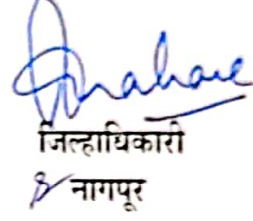 जिल्हाधिकारी
नागपूर